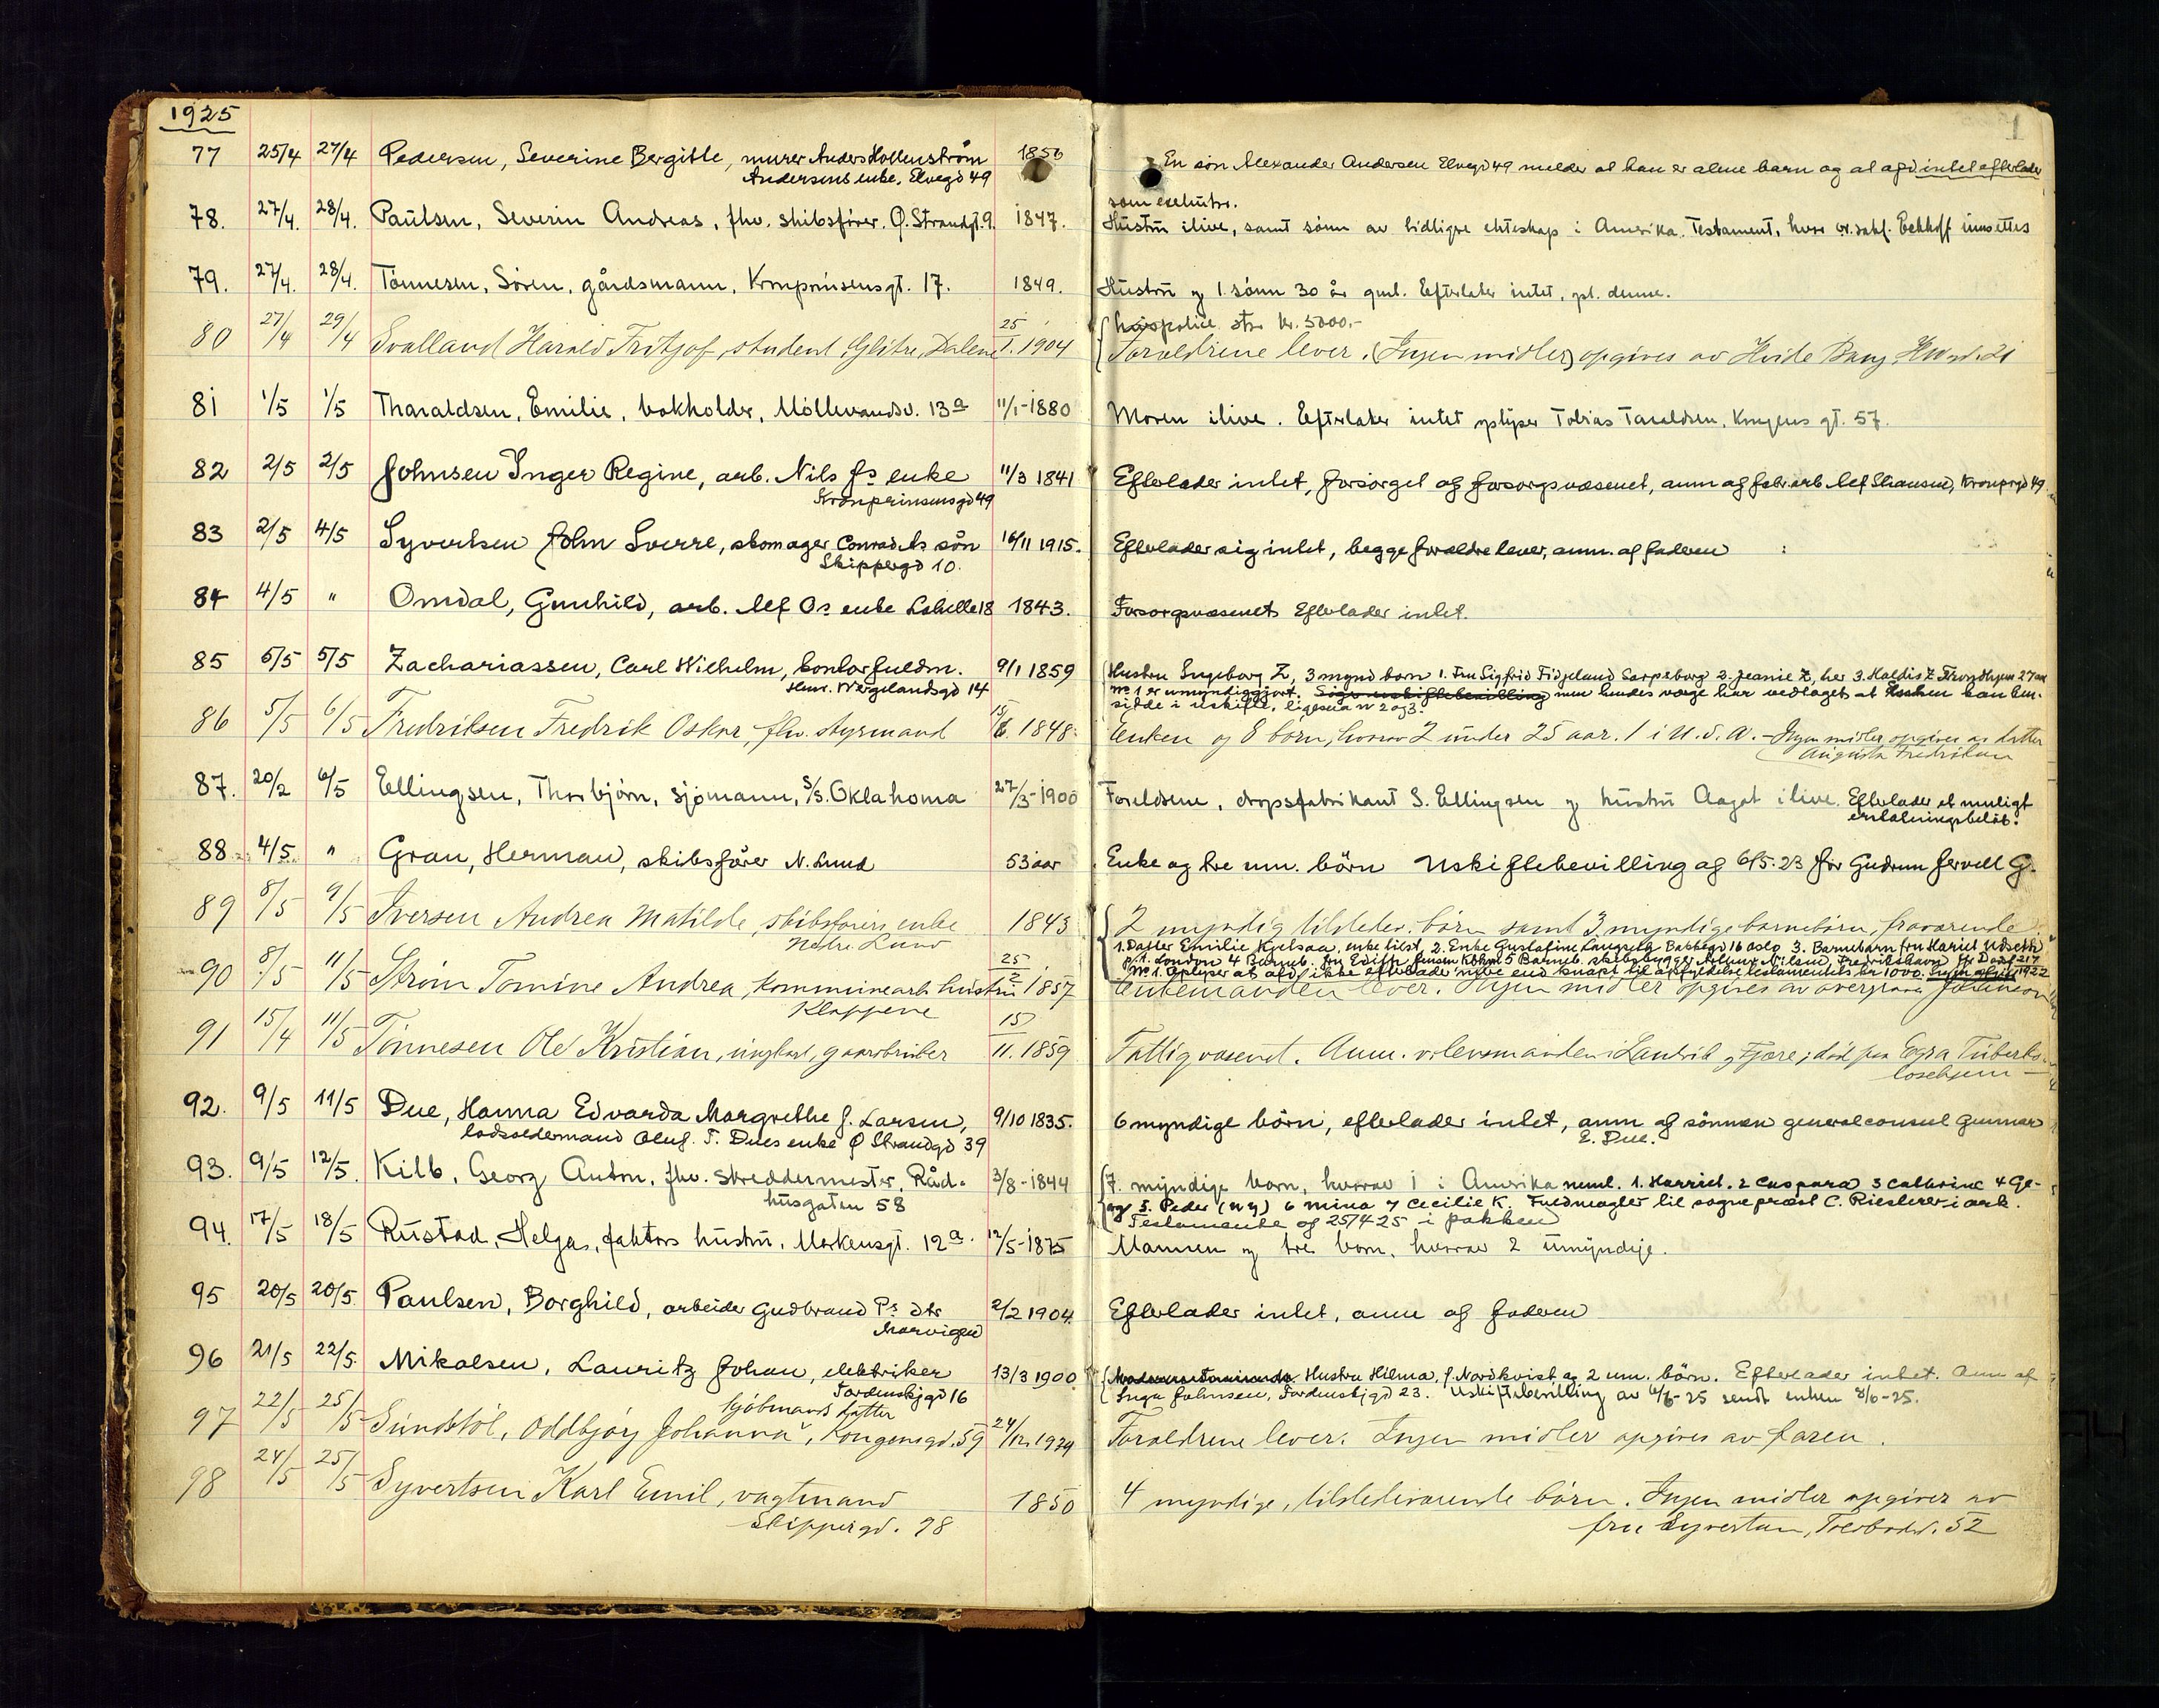 1925
77 25/4 27/4 Pedersen, Severine Bergitte, murer Anders Hollenström 1856 En sön Alexander Andersen Elvegd 49 melder at han er alene barn og at afd intet efterlader
Andersens enke, Elvegd 49 som exekutor.
78. 27/4. 28/4. Paulsen, Severin Andreas, fhv. skibsfører. Ø. Strandgt. 9. 1847. Hustru ilive, samt sønn av tidligre ekteskap i Amerika. Testament, hvor or. sakf. Eckhoff innsettes
79. 27/4. 28/4. Tønnesen, Søren, gårdsmann, Kronprinsensgt. 17. 1849. Hustru og 1 sønn 30 år gml. Efterlater intet, opl. denne.
Livspolice stor kr. 5000.-
80 27/4 29/4 Svalland Harald Fritjof, student, Glitre, Dalene 25/1. 1904 Forældrene lever. (Ingen midler) opgives av Hvide Bang, HWgd. 21
81 1/5 1/5 Tharaldsen, Emilie, bokholder, Møllevandsv. 13a 11/1-1880 Moren ilive. Efterlater intet oplyser Tobias Taraldsen, Kongens gt. 57.
82 2/5 2/5 Johnsen Inger Regine, arb. Nils Js enke 11/3 1841 Efterlader intet, forsörget af forsorgsvæsenet, anm af fabr.arb. Alf Stiansen, Kronprgd 49.
Kronprinsensgd 49
83 2/5 4/5 Syvertsen John Sverre, skomager Conrad As sön 16/11 1915. Efterlader sig intet, begge forældre lever, anm. af faderen
Skippergd 10.
84 4/5 " Omdal, Gunhild, arb. Alf Os enke Lahelle 18 1843. Forsorgsvæsenets Efterlader intet.
85 5/5 5/5 Zachariassen, Carl Wilhelm, kontorfuldm. 9/1 1859 Hustru Ingeborg Z, 3 mynd barn 1. Fru Sigfrid Fidjeland Sarpsborg 2. Jeanie Z, her 3. Haldis Z Trondhjem 27 aar
Henr. Wergelandsgd 14 No 1 er umyndiggjort. men hendes værge har vedtaget at kan hen-
sidde i uskifte, ligesaa nr 2 og 3.
86 5/5 6/5 Fredriksen Fredrik Oskar, fhv. styrmand 15/6. 1848. Enken og 8 börn, hvorav 2 under 25 aar. 1 i U.S.A. - Ingen midler opgives av datter
Augusta Fredriksen
87. 20/2 6/5 Ellingsen, Thorbjørn, sjømann, S/S. Oklahoma 27/3-1900 Foreldrene, dropsfabrikant S. Ellingsen og hustru Aagot ilive. Efterlader et muligt
erstatningsbelöb.
88. 4/5. " Grau, Herman, skibsförer N. Lund 53 aar Enke og tre um. börn Uskiftebevilling af 6/5. 23 for Gudrun Jervell G.
89 8/5 9/5 Iversen Andrea Matilde, skibsförers enke 1843 2 myndig tilstedev. börn samt 3 myndige barnebörn, fraværende.
Nedre Lund 1. Datter Emilie Kjelsaa, enke tilst, 2. Enke Gustafine Langseth Bakkegd 16 Oslo 3. Barnebarn fru Hariet Udseth
p.t. London 4 Barneb. fru Edith Jensen Kbhn 5 Barneb. skibsbygger Arthur Nilsen, Fredrikshavn
No 1. Oplyser at afd ikke efterlader mere end knapt til opfyldelse testamentets kr 1000. 1922
90 8/5 11/5 Ström Tomine Andrea, kommunearb. hustru 25/12 1857 Enkemanden lever. Ingen midler opgives av overgrav Johnson
Kleppene
91 15/4 11/5 Tönnesen Ole Kristian, ungkarl, gaardbruker 15/11. 1859 Fattigvæsenet. Anm. v. lensmanden i Landvik og Fjære; död paa Egra Tuberku-
losehjem
92. 9/5 11/5 Due, Hanna Edvarda Margrethe f. Larsen, 9/10 1835. 6 myndige börn, efterlader intet, anm af sönnen generalconsul Gunnar
lodsoldermand Oluf T. Dues enke Ø Strandgd 39 E. Due.
93. 9/5 12/5. Kilb, Georg Anton, fhv. skreddermester, Råd- 3/8-1844 7. myndige born, hvorav 1 i Amerika neml. 1. Harriet. 2 Caspara 3 Cathrine 4 Ge-
husgaten 58 org 5. Peder (N Y) 6 Mina 7 Cecilie K. Fuldmagter til sogneprest C. Riesterer i ark.
Testamente af 25/4 25 i pakken
94. 17/5 18/5 Rustad, Helga, faktors hustru, Markensgt. 12a. 12/5-1875 Mannen og tre born, hvorav 2 umyndige.
95 20/5 20/5 Paulsen, Borghild, arbeider Gudbrand Ps dtr 2/2 1904. Efterlader intet, anm af faderen
Marvigen
96 21/5 22/5. Mikalsen, Lauritz Johan, elektriker 13/3 1900 Hustru Hilma, f. Nordkvist og 2 um. börn. Efterlader intet. Anm af
Tordenskjgd 16 Inga Johnsen, Tordenskjgd 23. Uskiftebevilling av 6/6-25 sendt enken 8/6-25.
kjöbmands datter
97 22/5 25/5 Sundstöl, Oddbjörg Johanna, Kongensgd. 59 24/12. 1924 Forældrene lever. Ingen midler opgives av faren.
98 24/5 25/5 Syvertsen Karl Emil, vagtmand 1850 4 myndige, tilstedeværende börn. Ingen midler opgives av
Skippergd. 98 fru Syvertsen, 52